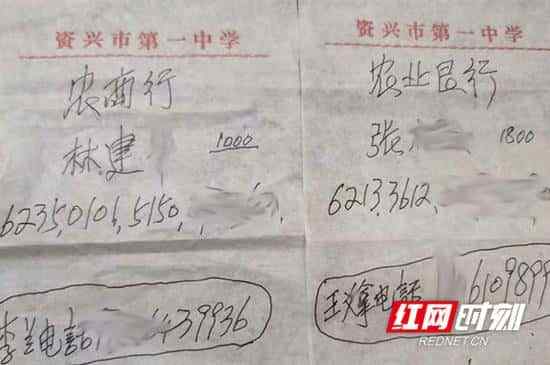 资兴市第一中学
农商行
林建 1000
6235,0101,5150,
李兰电话 439936
资兴市第一中学
农业艮行
张 1800
6213,3612,
电话 6109899
红网时刻
REDNET.CN